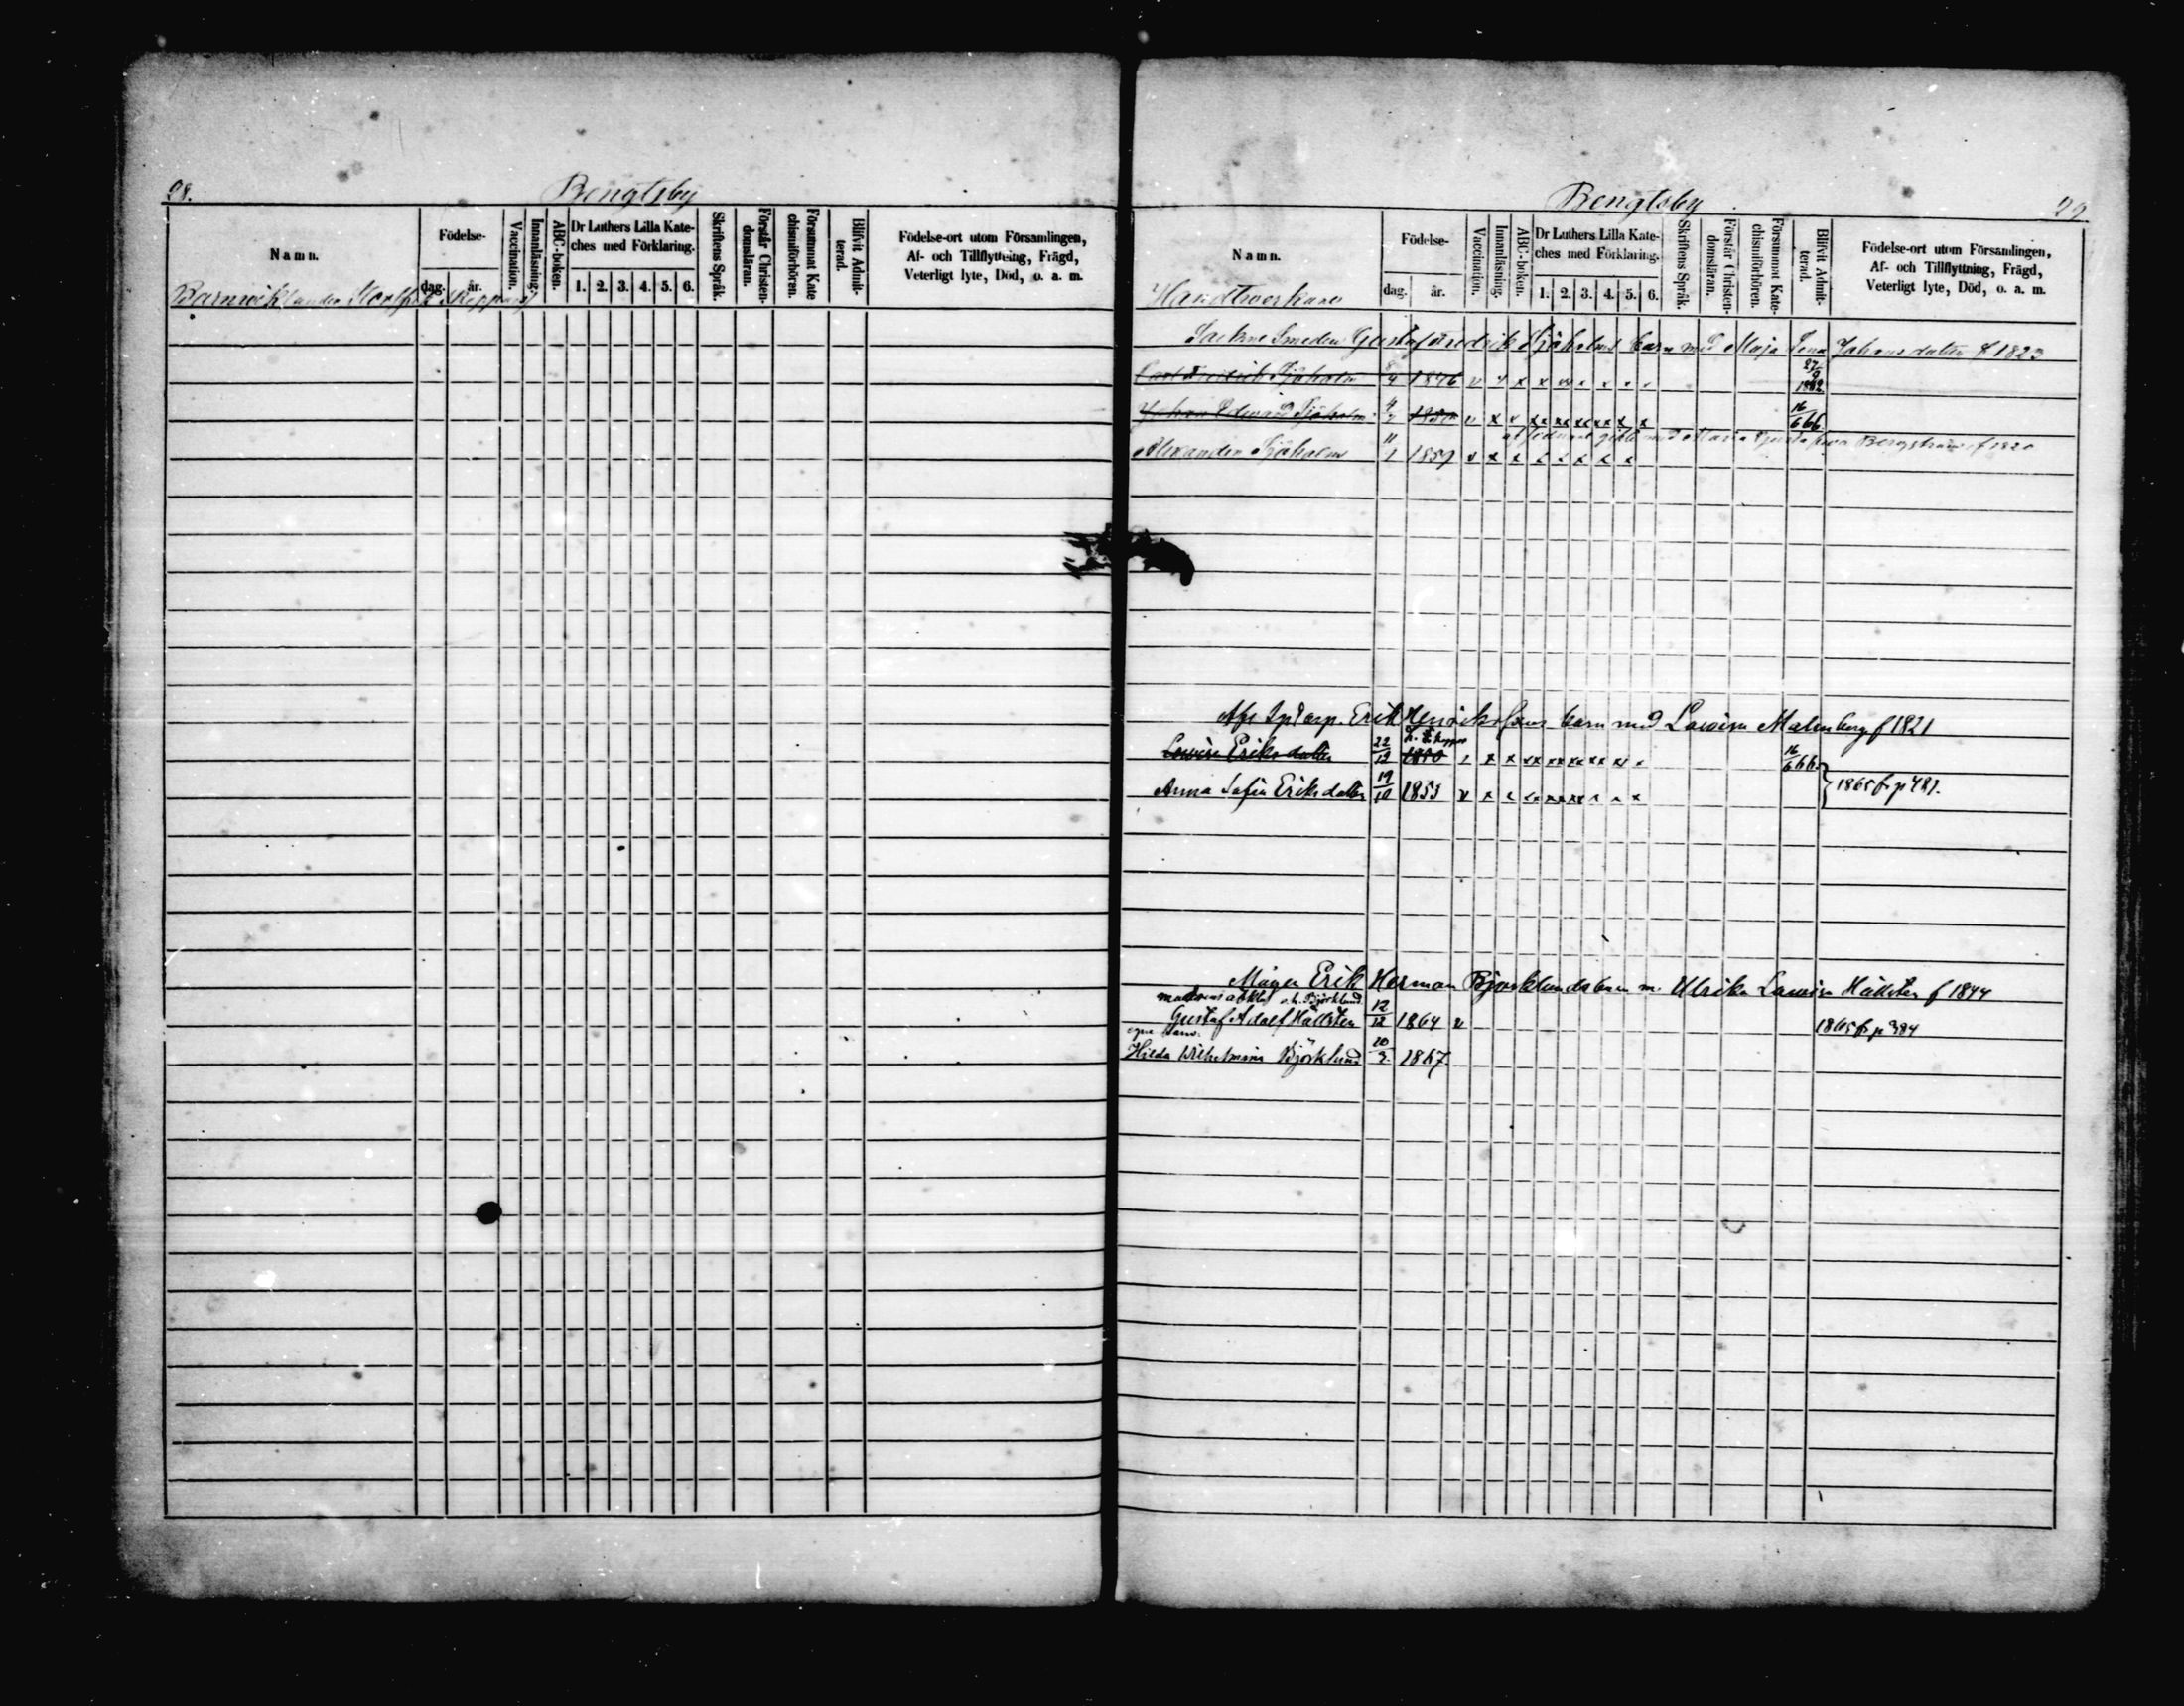 28.
Bengtsby
Namn.
Födelse-
dag.
år.
Vaccination.
Innanläsning.
ABC-boken.
Dr Luthers Lilla Kate-
ches med Förklaring.
1. 2. 3. 4. 5. 6.
Skriftens Språk.
Förstår Christen-
domsläran.
Försummat Kate
chismiförhören.
Blifvit Admit-
terad.
Födelse-ort utom Församlingen,
Af- och Tillflyttning, Frägd,
Veterligt lyte, Död, o. a. m.
Bengtsby
29
Namn.
Födelse-
dag.
år.
Vaccination.
Innanläsning.
ABC-boken.
Dr Luthers Lilla Kate-
ches med Förklaring.
1. 2. 3. 4. 5. 6.
Skriftens Språk.
Förstår Christen-
domsläran.
Försummat Kate-
chismiförhören.
Blifvit Admit-
terad.
Födelse-ort utom Församlingen,
Af- och Tillflyttning, Frägd,
Veterligt lyte, Död, o. a. m.
Handtverkare
Smeden Gustaf Fredrik Sjöholms barn med Maja Lena Johansdotter f 1823
Carl Fredrik Sjöholm 1846 v x x x x x x x 27/9 1862
Johan Edward Sjöholm 1850 v x x xx xx xx xx x x 16/6 66.
gift med Maria Bergström f 1820
Alexander Sjöholm 11/1 1857 v x x x x x x x
Erik Henrikssons barn med Lovisa Malmberg f 1821
Lovisa Eriksdotter 22/12 1850 x x xx xx xx xx xx x 16/6 66.
Anna Sofia Eriksdotter 19/10 1853 v x x xx xx xx x x x } 1865 fr p 481.
Erik Herman Björklunds barn m. Ulrika Lovisa Hällsten f 1844
Gustaf Adolf Hällsten 12/12 1864 v 1865 fr p 384
egna barn.
Hilda Wilhelmina Björklund 10/3. 1867.